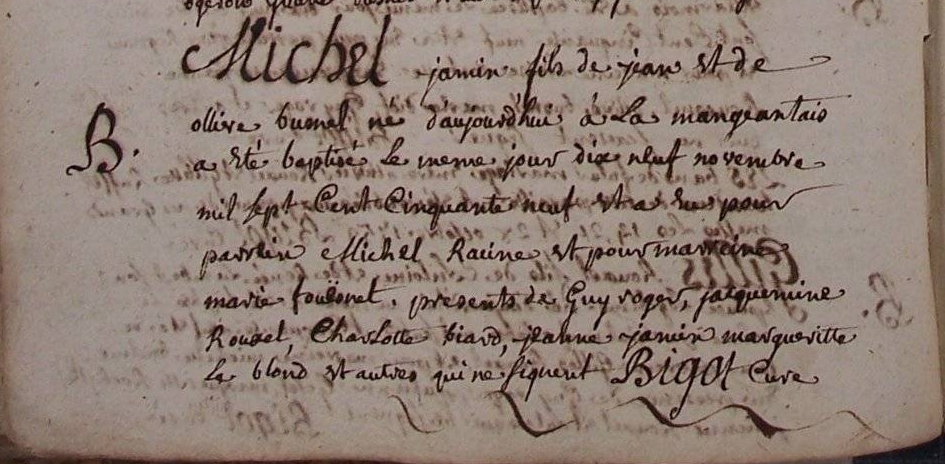 Michel jamin fils de jean et de
B.
ollive buonel né d'aujourd'hui à La mangeantais
a eté baptisé Le meme jour dix neuf novembre
mil sept Cent Cinquante neuf et a eu pour
parrein Michel Racine et pour marreine
marie presents de Guy roger, jacquemine
Rouxel, Charlotte biard, jeanne jamin margueritte
Le blond et autres qui ne signent Bigot Cure